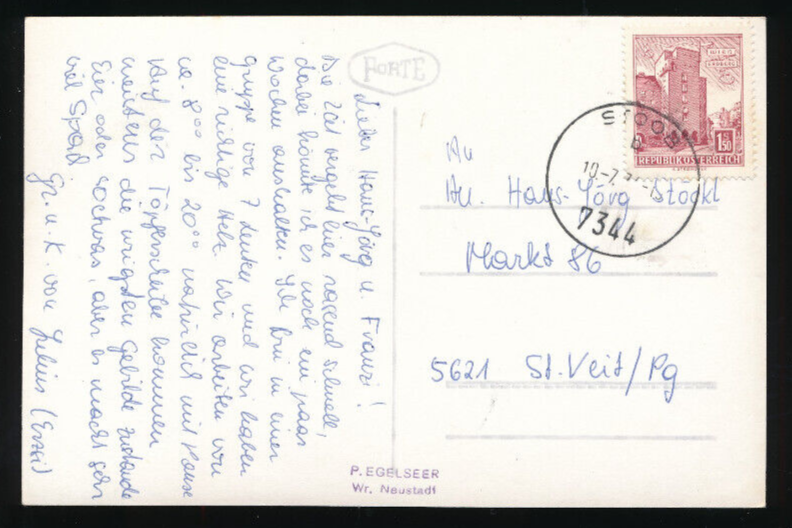 Lieber Hans-Jörg u. Franzi!
Die Zeit vergeht hier rasend schnell,
dabei könnte ich es noch ein paar
Wochen aushalten. Ich bin in einer
gruppe von 7 Leuten und wir haben
eine richtige Hetz. Wir arbeiten von
ca. 8⁰⁰ bis 20⁰⁰ natürlich mit Pause
Auf der Töpferscheibe kommen
meistens die urigsten Gebilde zustande
Eier oder sowas, aber es macht sehr
viel Spaß
Gr. u. K. von
FORTE
WIEN
1.50
REPUBLIK ÖSTERREICH
STOOB
7344
An
Hans-Jörg Stöckl
Markt 86
5621 St. Veit/Pg
P. EGELSEER
Wr. Neustadt